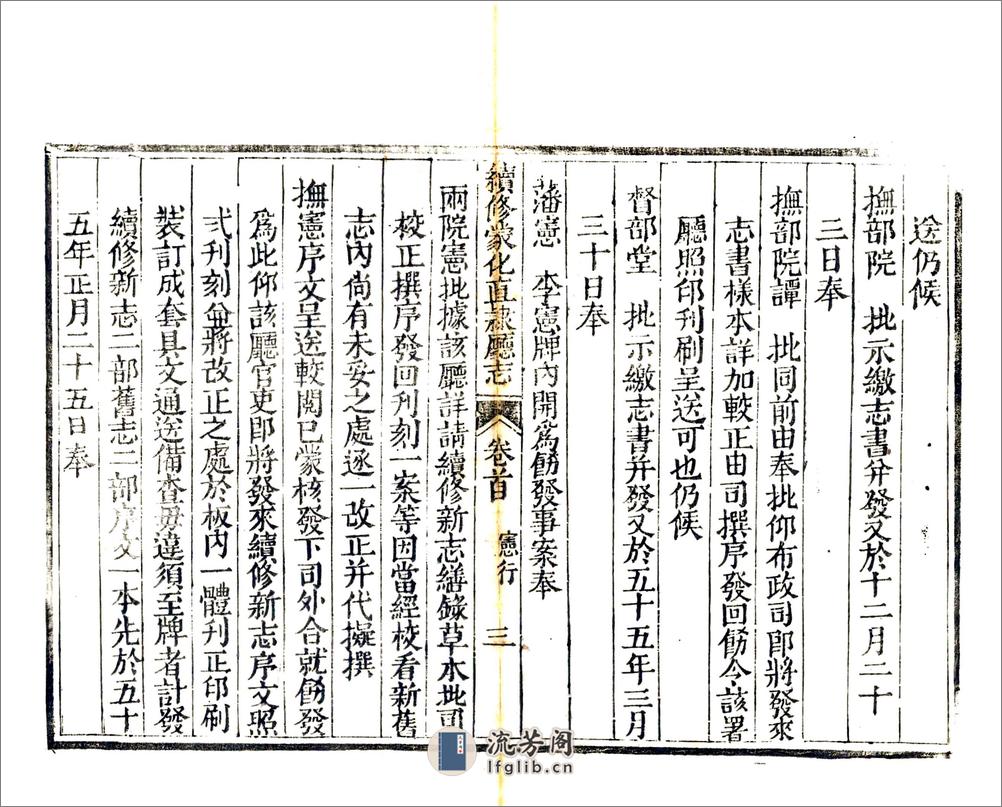 送仍候
撫部院　批示繳志書并發又於十二月二十
三日奉
撫部院譚　批同前由奉批仰布政司卽將發來
志書樣本詳加較正由司撰序發回飭令該署
廳照印刊刷呈送可也仍候
督部堂　批示繳志書并發又於五十五年三月
三十日奉
藩憲　李憲牌內開爲飭發事案奉
續修蒙化直隸廳志　卷首　憲行　三
兩院憲批據該廳詳請續修新志繕錄草本批司
校正撰序發回刊刻一案等因當經校看新舊
志內尚有未安之處逐一改正并代擬撰
撫憲序文呈送較閱已蒙核發下司外合就飭發
爲此仰該廳官吏卽將發來續修新志序文照
式刊刻并將改正之處於板內一體刊正印刷
裝訂成套具文通送備查毋違須至牌者計發
續修新志二部舊志二部序文一本先於五十
五年正月二十五日奉
流芳阁
lfglib.cn